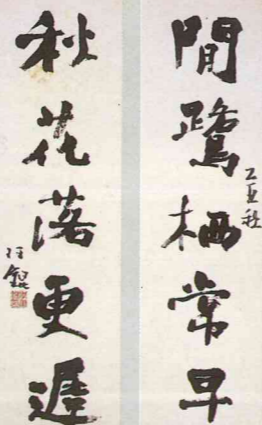 閒鷺栖常早
乙亥秋
秋花落更遲